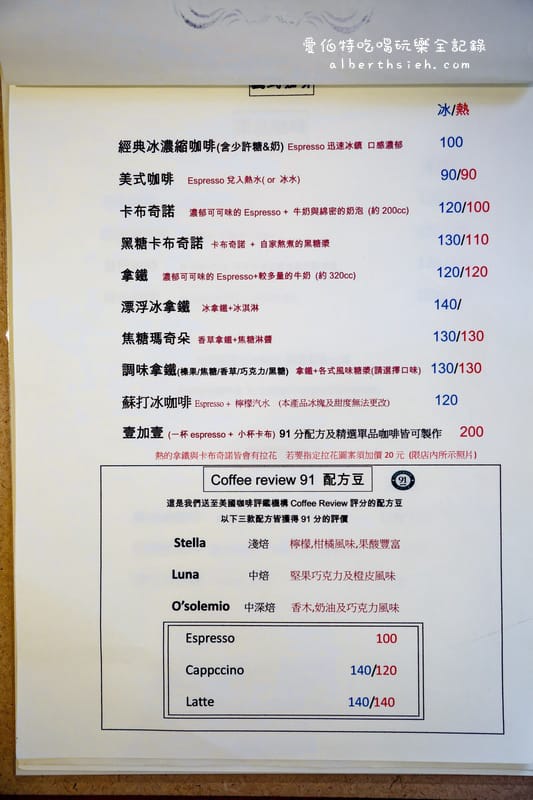 愛伯特吃喝玩樂全記錄
alberthsieh.com
冰/熱
經典冰濃縮咖啡(含少許糖&奶) Espresso 迅速冰鎮 口感濃郁 100
美式咖啡 Espresso 兌入熱水( or 冰水) 90/90
卡布奇諾 濃郁可可味的 Espresso + 牛奶與綿密的奶泡 (約 200cc) 120/100
黑糖卡布奇諾 卡布奇諾 + 自家熬煮的黑糖漿 130/110
拿鐵 濃郁可可味的 Espresso+較多量的牛奶 (約 320cc) 120/120
漂浮冰拿鐵 冰拿鐵+冰淇淋 140/
焦糖瑪奇朵 香草拿鐵+焦糖淋醬 130/130
調味拿鐵(榛果/焦糖/香草/巧克力/黑糖) 拿鐵+各式風味糖漿(請選擇口味) 130/130
蘇打冰咖啡 Espresso + 檸檬汽水 (本產品冰塊及甜度無法更改) 120
壹加壹 (一杯 espresso + 小杯卡布) 91 分配方及精選單品咖啡皆可製作 200
熱的拿鐵與卡布奇諾皆會有拉花 若要指定拉花圖案須加價 20 元 (限店內所示照片)
Coffee review 91 配方豆
91
這是我們送至美國咖啡評鑑機構 Coffee Review 評分的配方豆
以下三款配方皆獲得 91 分的評價
Stella 淺焙 檸檬,柑橘風味,果酸豐富
Luna 中焙 堅果巧克力及橙皮風味
O'solemio 中深焙 香木,奶油及巧克力風味
Espresso 100
Cappccino 140/120
Latte 140/140